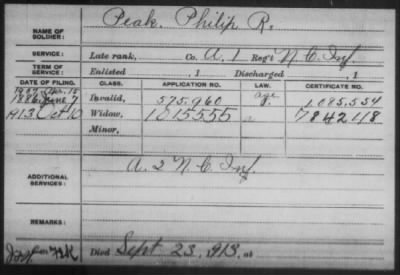 NAME OF SOLDIER: Peak, Philip R.
SERVICE: Late rank, Co. A, 1 Reg't N.C. Inf.
TERM OF SERVICE: Enlisted , 1 Discharged , 1
DATE OF FILING. CLASS. APPLICATION NO. LAW. CERTIFICATE NO.
1907 Apr. 15
1886 June 7 Invalid, 575.960 age 1.085.554
1913 Oct 10 Widow, 1015555 784218
Minor,
ADDITIONAL SERVICES: A. 2 N.C. Inf.
REMARKS:
Died Sept 23, 1913, at